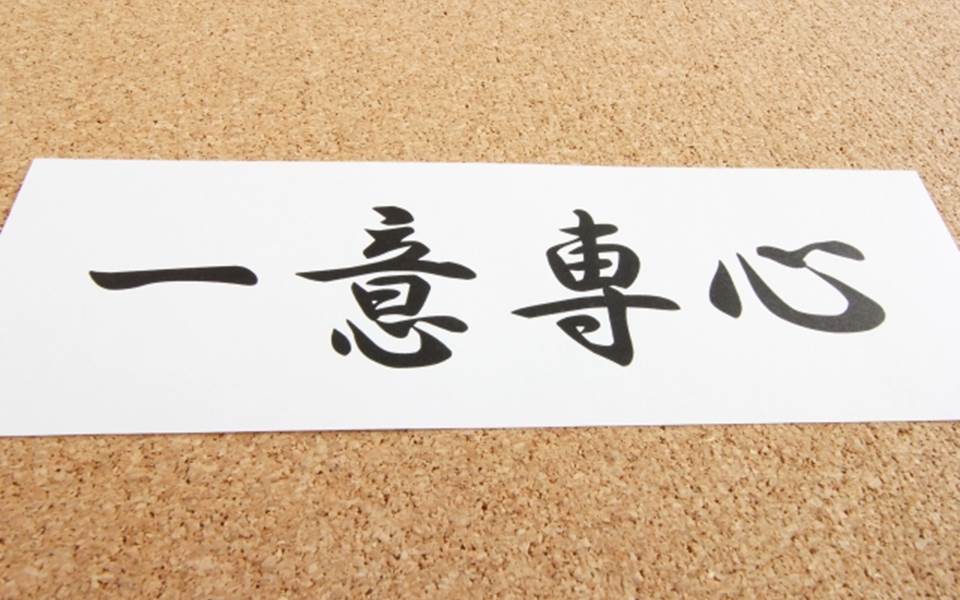 一意専心